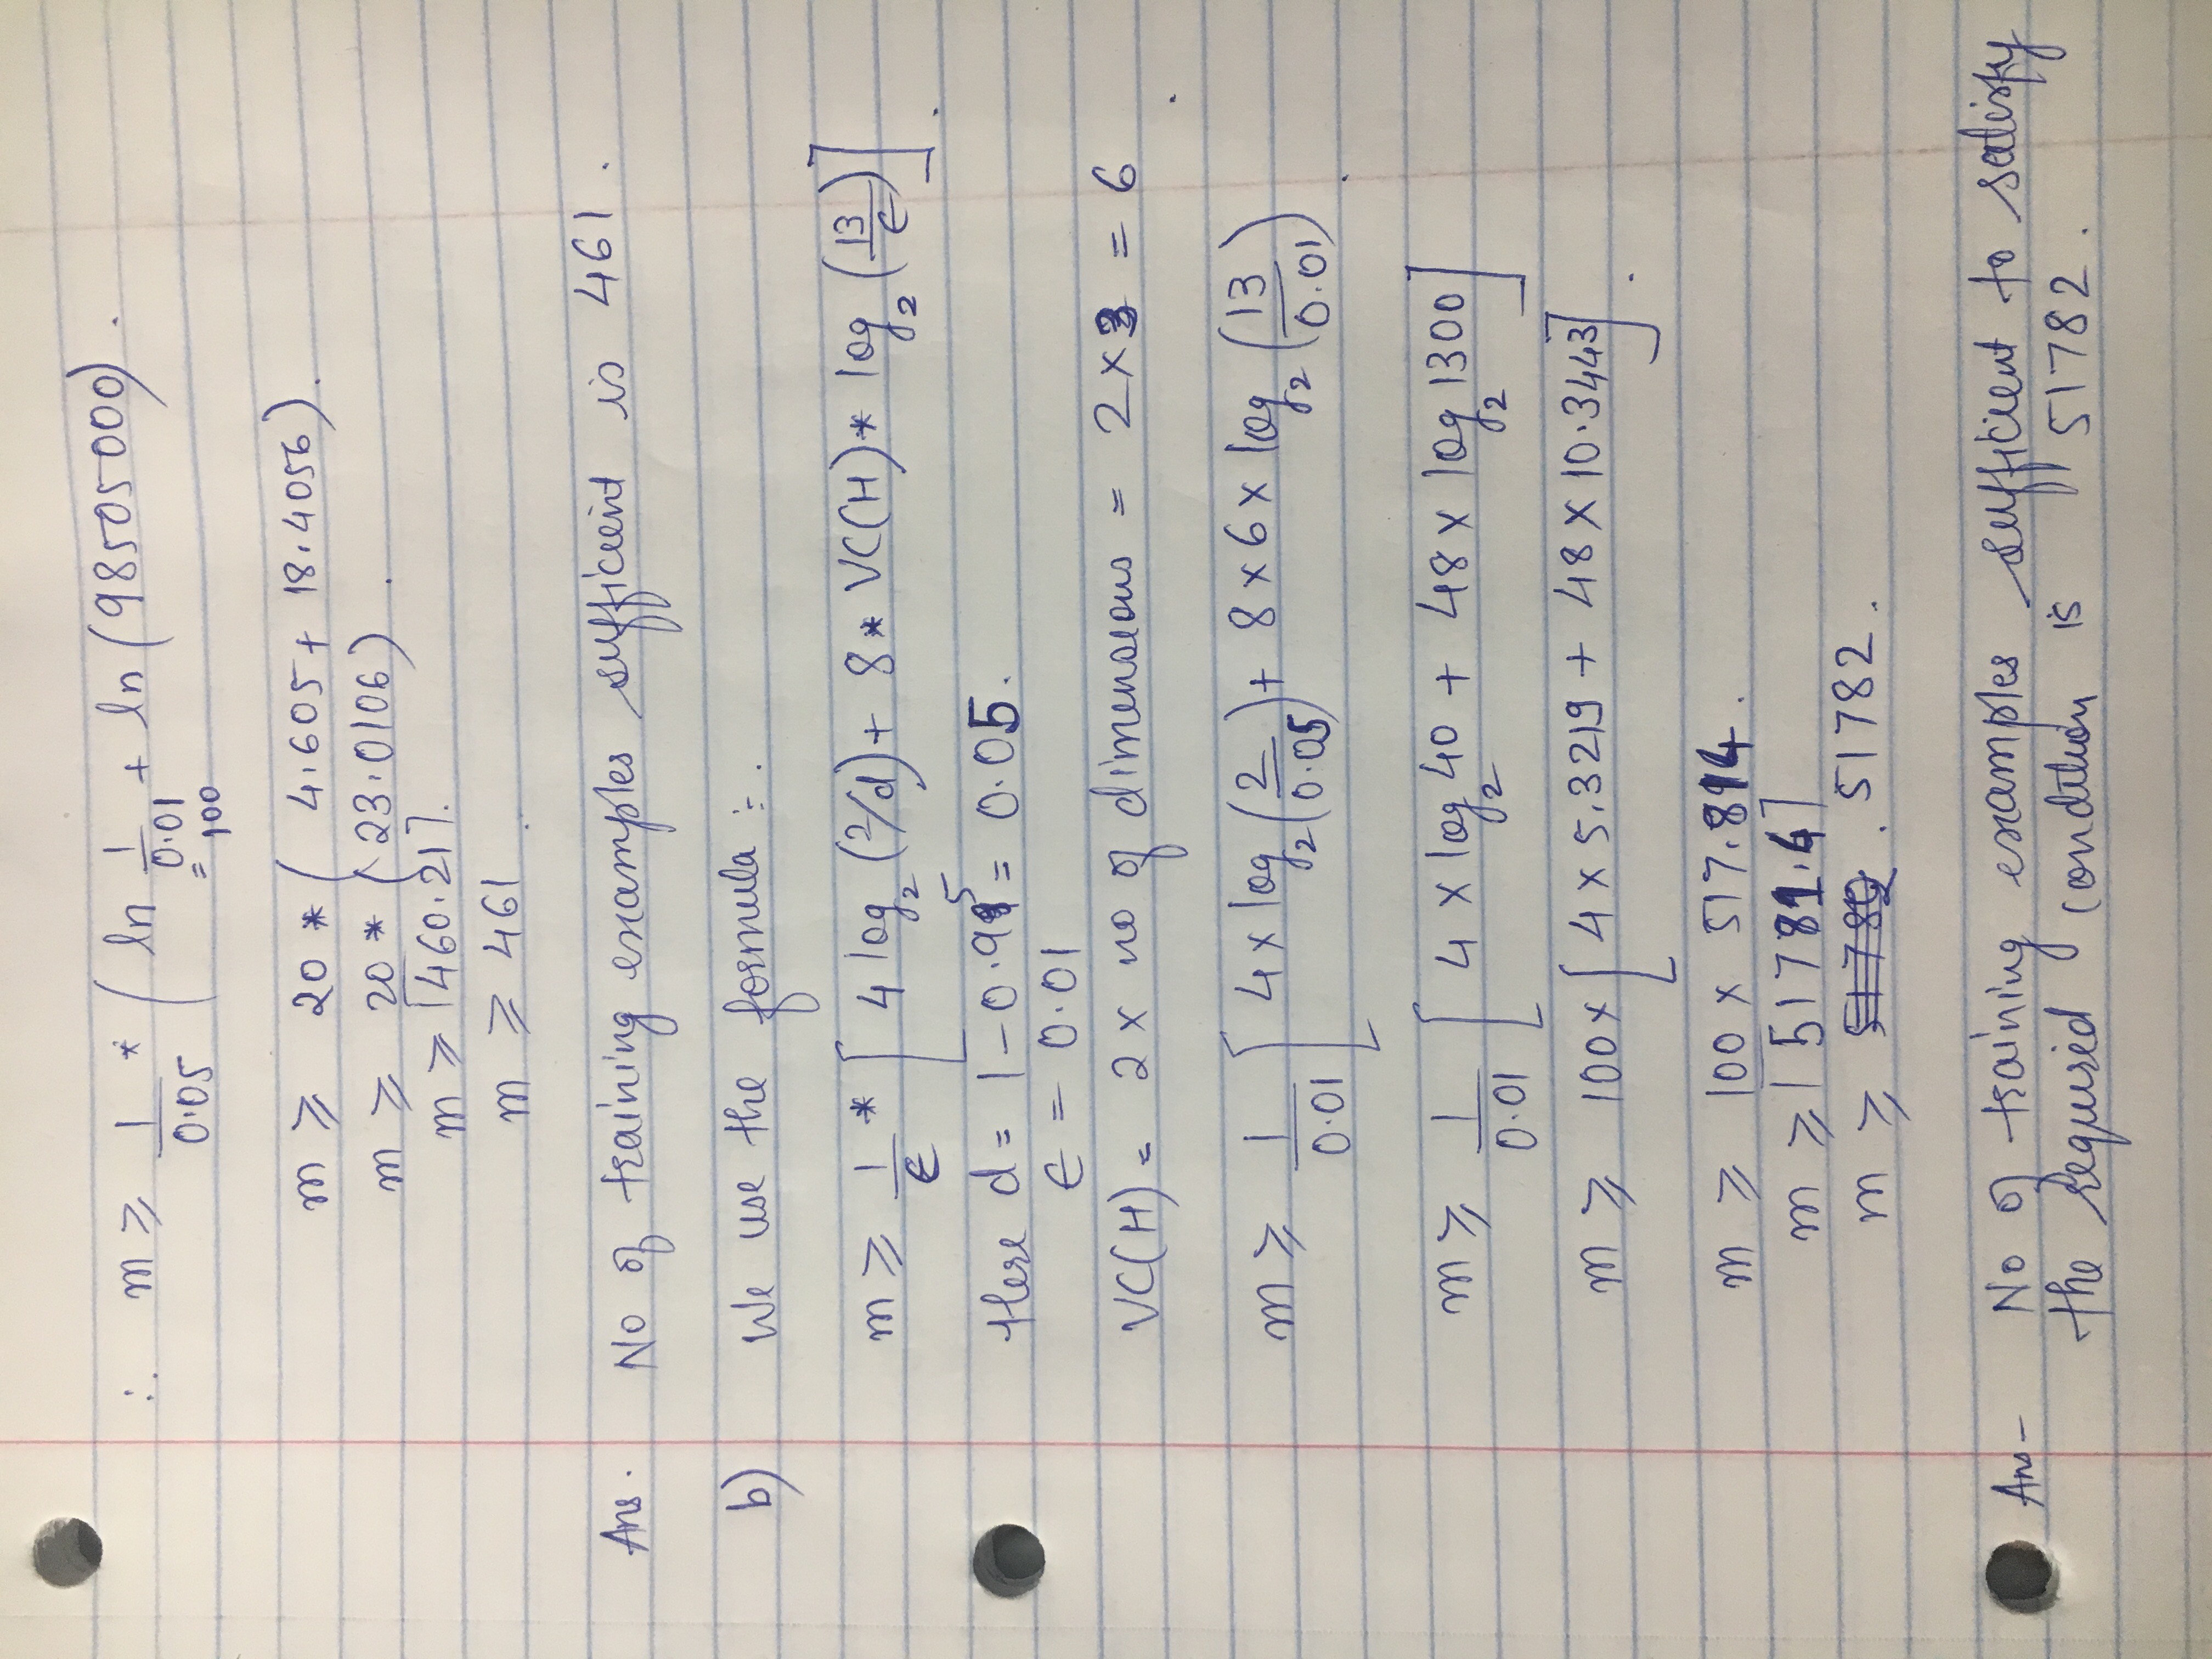 ∴ m ≥ 1/0.05 * ( ln 1/0.01 + ln (98505000) .
= 100
m ≥ 20 * ( 4.605 + 18.4056).
m ≥ 20 * (23.0106) .
m ≥ ⌈460.21⌉.
m ≥ 461 .
Ans. No of training examples sufficient is 461 .
b) We use the formula :- .
m ≥ 1/ϵ * [ 4 log₂ (2/d) + 8 * VC(H) * log₂ (13/ϵ) ] .
Here d = 1 - 0.95 = 0.05.
ϵ = 0.01
VC(H) = 2 x no of dimensions = 2 x 3 = 6 .
m ≥ 1/0.01 [ 4 x log₂ (2/0.05) + 8 x 6 x log₂ (13/0.01) .
m ≥ 1/0.01 [ 4 x log₂ 40 + 48 x log₂ 1300 ]
m ≥ 100 x [ 4 x 5.3219 + 48 x 10.3443 ] .
m ≥ 100 x 517.814 .
m ≥ ⌈51781.4⌉
m ≥ . 51782 .
Ans - No of training examples sufficient to satisfy
the required condition is 51782 .